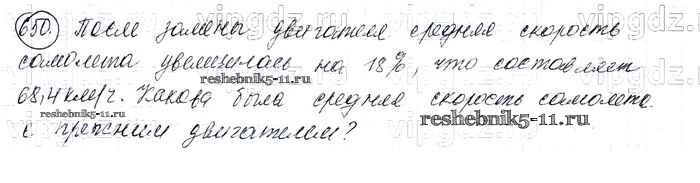 650. После замены двигателя средняя скорость
самолета увеличилась на 18%, что составляет
68,4 км/ч. Какова была средняя скорость самолета
с прежним двигателем?
reshebnik5-11.ru
reshebnik5-11.ru
vipgdz.ru